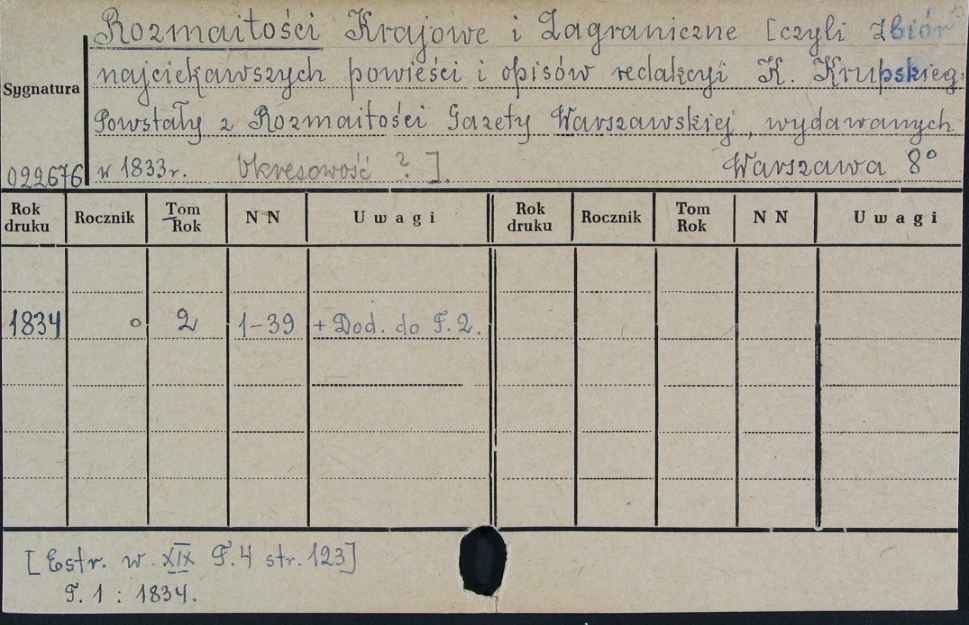 Rozmaitości Krajowe i Zagraniczne [czyli Zbiór
najciekawszych powieści i opisów redakcyi K. Krupskieg
Sygnatura
Powstały z Rozmaitości Gazety Warszawskiej, wydawanych
022676 w 1833r. Okresowość ? ]. Warszawa 8°
Rok druku Rocznik Tom Rok N N Uwagi Rok druku Rocznik Tom Rok N N Uwagi
1834 o 2 1-39 + Dod. do T. 2.
[Estr. w. XIX T.4 str. 123]
T. 1 : 1834.